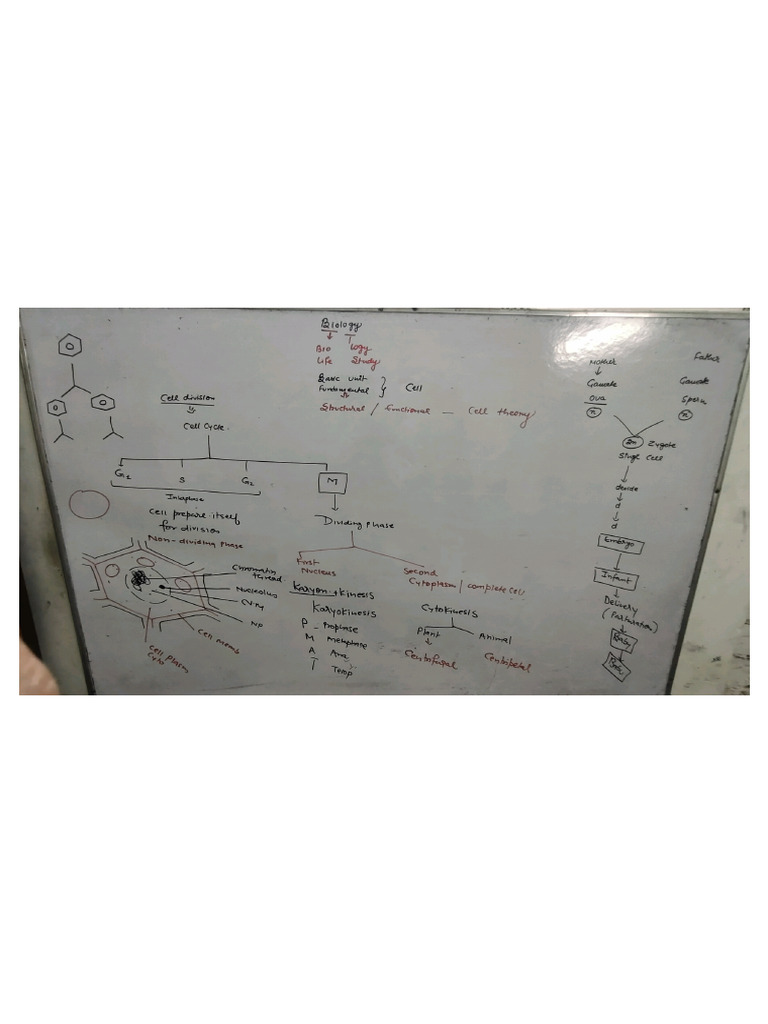 Biology
Bio logy
Life Study
Basic unit
Fundamental } Cell
Structural / Functional — Cell theory
Cell division
Cell Cycle
G2 S G2 M
Cell prepare itself
for division
Non-dividing Phase
Dividing Phase
First
Nucleus
Second
Cytoplasm / complete cell
Karyon + kinesis
Karyokinesis
P - Prophase
M Metaphase
A Ana
T
Cytokinesis
Plant Animal
Centrifugal Centripetal
Chromatin
thread
Nucleolus
NP
Cell memb
Cell plasm
Cyto
Mother Father
Gamate Gamate
Ova Sperm
n n
2n Zygote
Single Cell
devide
d
d
Embryo
Infant
Delivery
(Parturation)